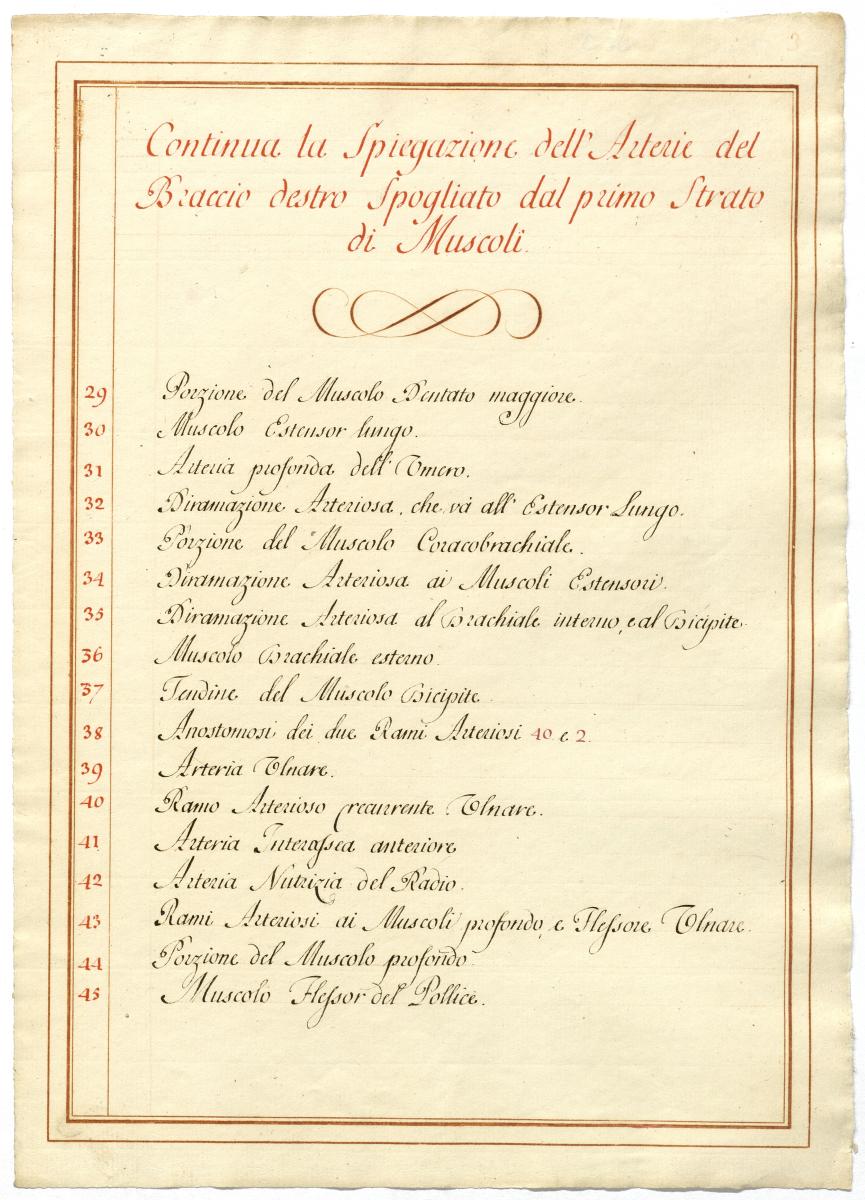 Continua la Spiegazione dell'Arterie del
Braccio destro Spogliato dal primo Strato
di Muscoli.
29 Porzione del Muscolo Dentato maggiore.
30 Muscolo Estensor lungo.
31 Arteria profonda dell'Umero.
32 Diramazione Arteriosa, che và all'Estensor Lungo.
33 Porzione del Muscolo Coracobrachiale.
34 Diramazione Arteriosa ai Muscoli Estensori.
35 Diramazione Arteriosa al Brachiale interno, e al Bicipite.
36 Muscolo Brachiale esterno.
37 Tendine del Muscolo Bicipite.
38 Anostomosi dei due Rami Arteriosi 40 e 2.
39 Arteria Ulnare.
40 Ramo Arterioso recurrente Ulnare.
41 Arteria Interossea anteriore
42 Arteria Nutrizia del Radio.
43 Rami Arteriosi ai Muscoli profondo, e Flessore Ulnare.
44 Porzione del Muscolo profondo.
45 Muscolo Flessor del Pollice.